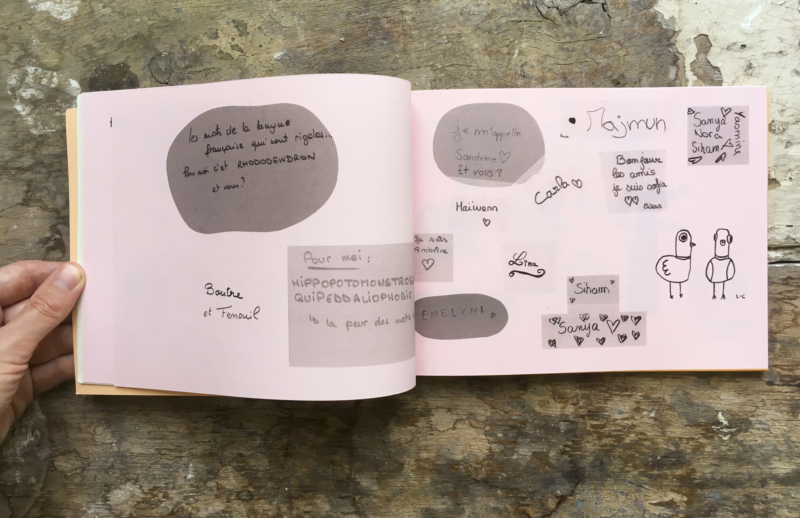 les mots de la langue
française qui sont rigolos...
Pour moi c'est RHODODENDRON
et vous?
Pour moi :
HIPPOPOTOMONSTROSE
QUIPEDDALIOPHOBIE
↳ la peur des mots
Boutre
et Fenouil
je m'appelle
Sandrine ♡
Et vous ?
Majmun
Sanya
Nora
Siham
Yasmine
Bonjour
les amis
je suis sofia
♡♡ Bisous
Carla ♡
Maïwenn
♡
Je suis
Ambrine
♡
Lina
Siham
Sanya ♡
EMELYNE
L-C